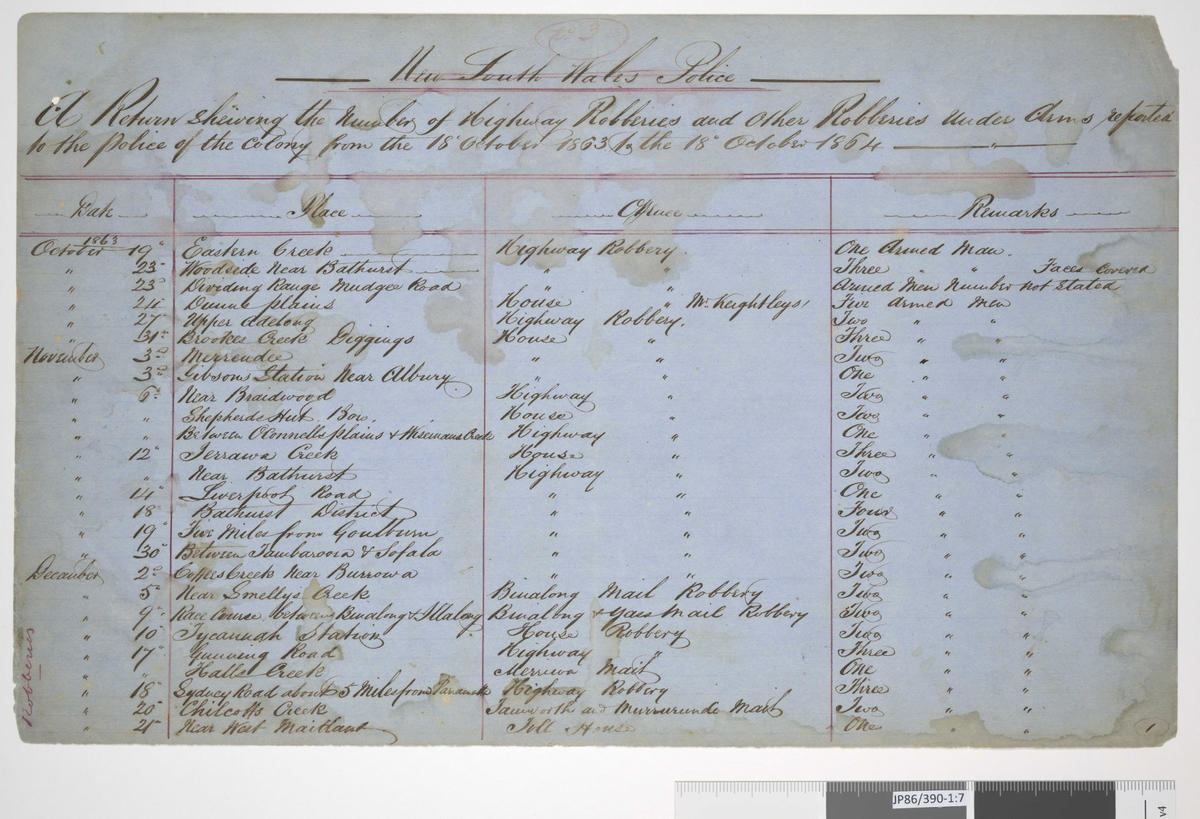 No 3
New South Wales Police
A Return shewing the Number of Highway Robberies and other Robberies under Arms reported
to the Police of the Colony from the 18 October 1863 to the 18 October 1864 — " —
Date Place Offence Remarks
1863
October 19 Eastern Creek Highway Robbery One Armed Man.
" 23 Woodside Near Bathurst " " Three " " Faces Covered
" 23 Dividing Range Mudgee Road " " Armed Men Number not Stated
" 24 Dunns plains House " Mr Keightleys' Five armed Men
" 27 Upper Adelong Highway Robbery. Two " "
" 31 Brookes Creek Diggings House " Three " "
November 3 Merrendee " " Two " "
" 3 Gibsons Station Near Albury " " One " "
" 6 Near Braidwood Highway " Two " "
" " Shepherds Hut. Bow. House " Two " "
" " Between O'Connells plains & Wisemans Creek Highway " One " "
" 12 Jerrawa Creek House " Three " "
" " Near Bathurst Highway " Two " "
" 14 Liverpool Road " " One " "
" 18 Bathurst District " " Four " "
" 19 Five Miles from Goulburn " " Two " "
" 30 Between Tambaroora & Sofala " " Two " "
December 2 Coffees Creek Near Burrowa " " Two " "
" 5 Near Smellys Creek Binalong Mail Robbery Two " "
" 9 Race Course between Binalong & Illalong Binalong & Yass Mail Robbery Two " "
" 10 Tycannah Station House Robbery Two " "
" 17 Gunning Road Highway " Three " "
" " Halls Creek Merriwa Mail One " "
" 18 Sydney Road about 5 Miles from Highway Robbery Three " "
" 20 Chilcotts Creek Tamworth and Murrurundi Mail Two " "
" 21 Near West Maitland Toll House One " "
Robberies
1
JP86/390-1:7
v4